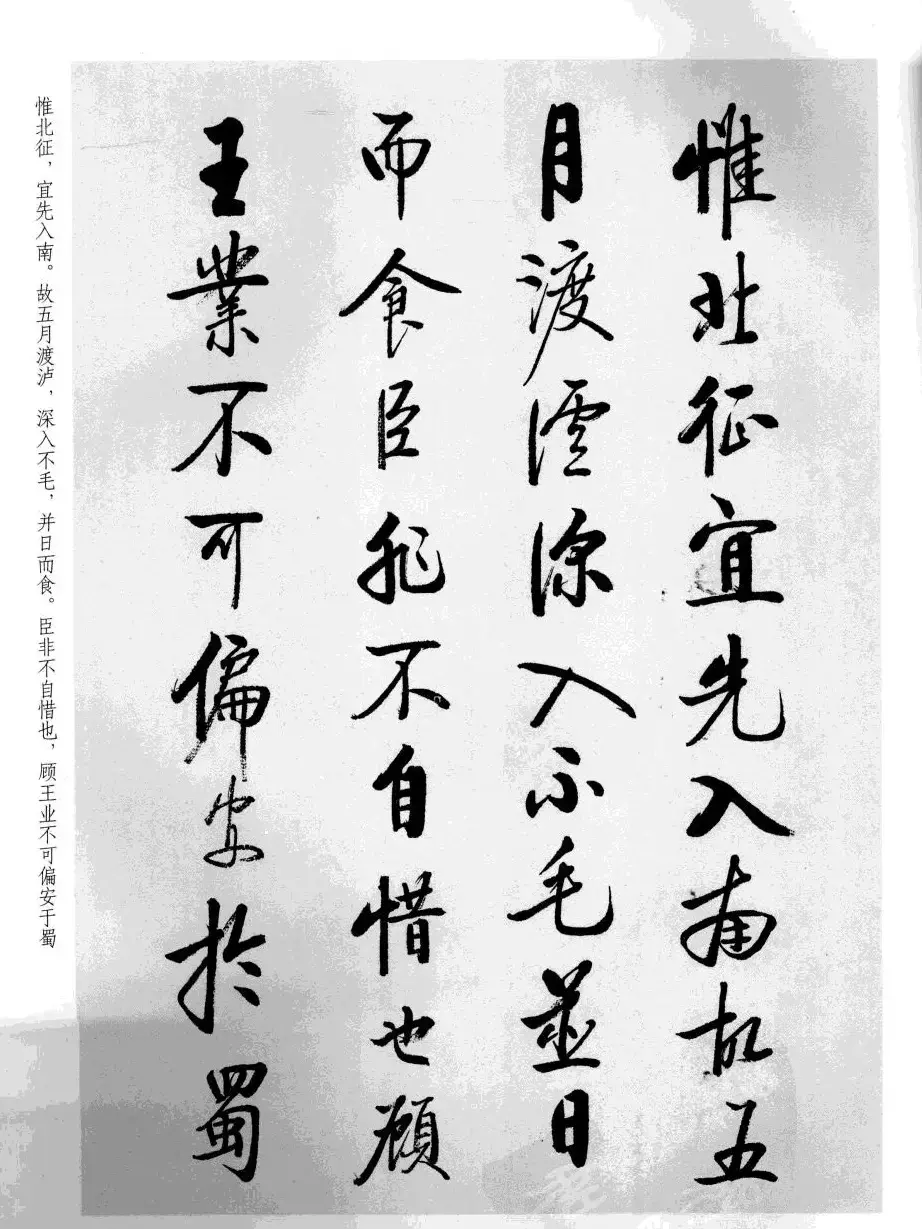 惟北征宜先入南故五
月渡瀘深入不毛並日
而食臣非不自惜也顧
王業不可偏安於蜀
惟北征，宜先入南。故五月渡泸，深入不毛，并日而食。臣非不自惜也，顾王业不可偏安于蜀